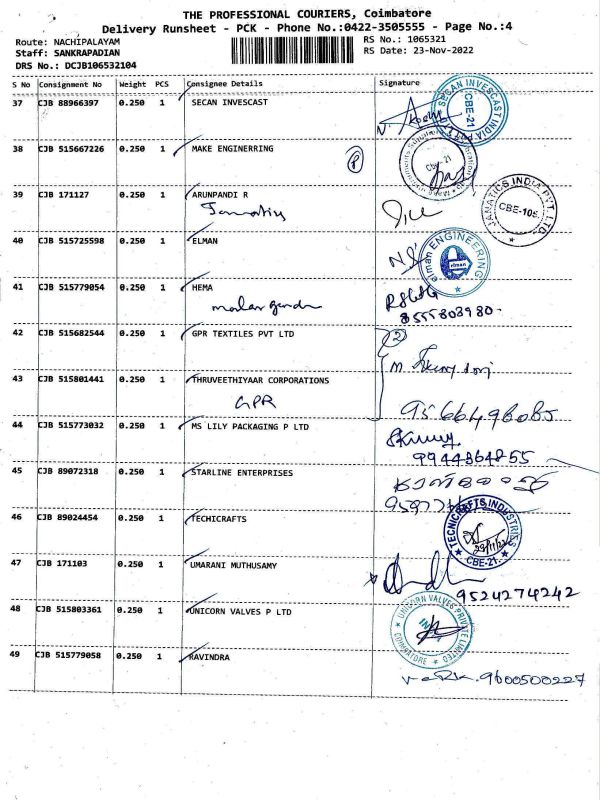 THE PROFESSIONAL COURIERS, Coimbatore
Delivery Runsheet - PCK - Phone No.:0422-3505555 - Page No.:4
Route: NACHIPALAYAM RS No.: 1065321
Staff: SANKRAPADIAN RS Date: 23-Nov-2022
DRS No.: DCJB106532104
S No Consignment No Weight PCS Consignee Details Signature
37 CJB 88966397 0.250 1 SECAN INVESCAST
SECAN INVESCAST INDIA CBE-21
38 CJB 515667226 0.250 1 MAKE ENGINERRING
P
39 CJB 171127 0.250 1 ARUNPANDI R
Jamatics
JAMATICS INDIA PVT. LTD. CBE-105.
40 CJB 515725598 0.250 1 ELMAN
elman ENGINEERING elman
41 CJB 515779054 0.250 1 HEMA
8555803980.
42 CJB 515682544 0.250 1 GPR TEXTILES PVT LTD 2
43 CJB 515801441 0.250 1 THRUVEETHIYAAR CORPORATIONS
GPR
44 CJB 515773032 0.250 1 MS LILY PACKAGING P LTD
9944364855
45 CJB 89072318 0.250 1 STARLINE ENTERPRISES
46 CJB 89024454 0.250 1 TECHICRAFTS
TECNICRAFTS INDUSTRIES CBE-21.
47 CJB 171103 0.250 1 UMARANI MUTHUSAMY
9524274242
48 CJB 515803361 0.250 1 UNICORN VALVES P LTD
UNICORN VALVES PRIVATE LIMITED COIMBATORE
49 CJB 515779058 0.250 1 RAVINDRA
9600500227